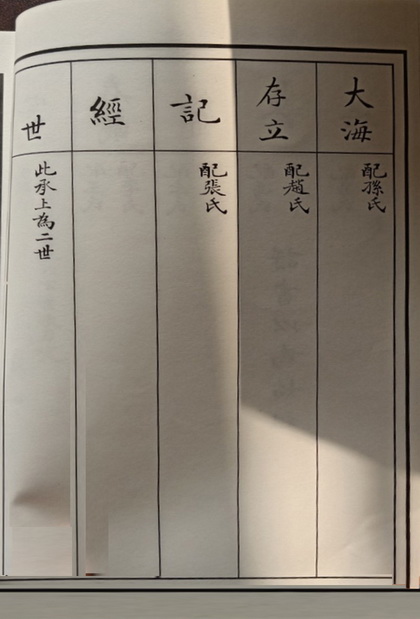 大海
配孫氏
存立
配趙氏
記
配張氏
經
世
此承上為二世